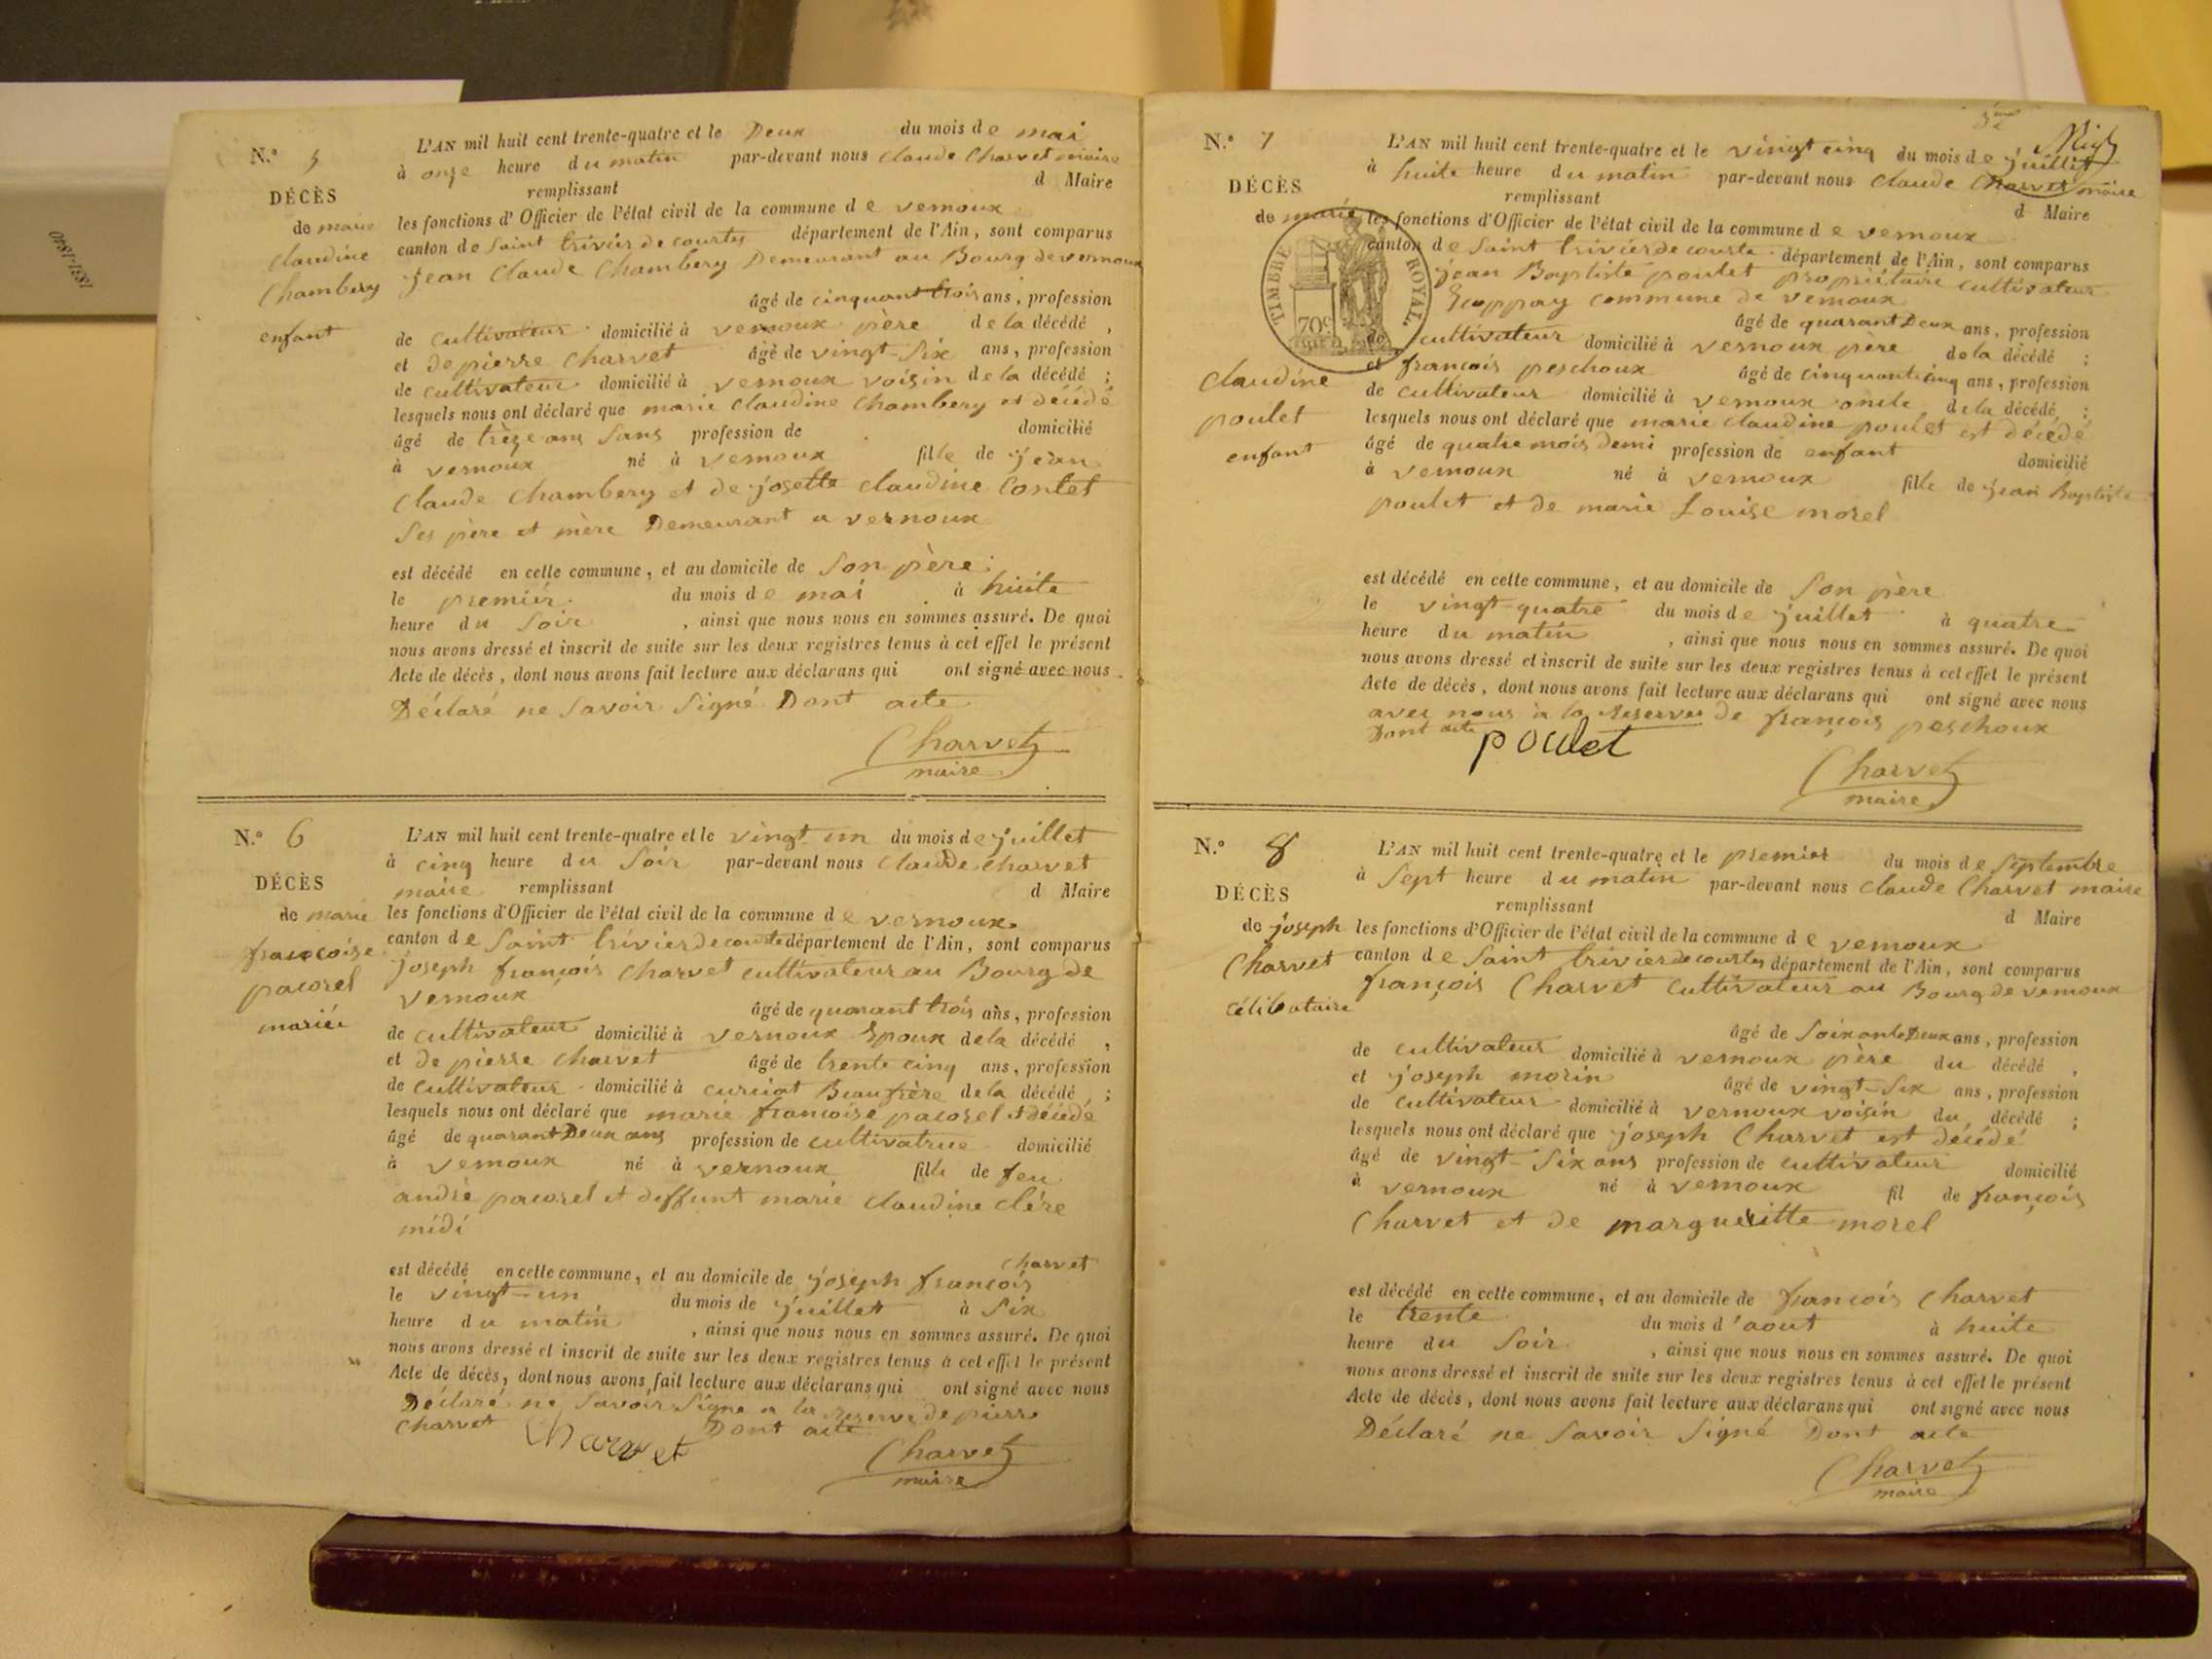 1831-1840
N.° 5
DÉCÈS
de marie
claudine
Chambery
enfant
L'AN mil huit cent trente-quatre et le Deux du mois de mai
à onze heure du matin par-devant nous claude Charvet maire
remplissant d Maire
les fonctions d'Officier de l'état civil de la commune de vernoux
canton de Saint triviér de courtes département de l'Ain, sont comparus
jean Claude Chambery Demeurant au Bourg de vernoux
âgé de cinquant trois ans, profession
de cultivateur domicilié à vernoux père de la décédé,
et de pierre Charvet âgé de vingt-Six ans, profession
de cultivateur domicilié à vernoux voisin de la décédé;
lesquels nous ont déclaré que marie claudine Chambery et décédé
âgé de trèze ans Sans profession de domicilié
à vernoux né à vernoux fille de jean
Claude Chambery et de josette claudine Contet
Ses père et mère Demeurant a vernoux
est décédé en cette commune, et au domicile de Son père
le premiér du mois de mai à huite
heure du Soir, ainsi que nous nous en sommes assuré. De quoi
nous avons dressé et inscrit de suite sur les deux registres tenus à cet effet le présent
Acte de décès, dont nous avons fait lecture aux déclarans qui ont signé avec nous
Déclaré ne Savoir Signé Dont acte
Charvet
maire
N.° 6
DÉCÈS
de marie
françoise
pacorel
mariéé
L'AN mil huit cent trente-quatre et le vingt un du mois de juillet
à cinq heure du Soir par-devant nous claude charvet
maire remplissant d Maire
les fonctions d'Officier de l'état civil de la commune de vernoux
canton de Saint trivier de courte département de l'Ain, sont comparus
joseph françois Charvet cultivateur au Bourg de
vernoux
âgé de quarant trois ans, profession
de cultivateur domicilié à vernoux Epoux de la décédé,
et de pierre Charvet âgé de trente cinq ans, profession
de cultivateur domicilié à curciat Beaufrère de la décédé;
lesquels nous ont déclaré que marie francoise pacorel et décédé
âgé de quarant Deux ans profession de cultivatrice domicilié
à vernoux né à vernoux fille de feu
andré pacorel et deffunt marie claudine clére
midi
est décédé en cette commune, et au domicile de joseph françois Charvet
le vingt-un du mois de juillet à Six
heure du matin, ainsi que nous nous en sommes assuré. De quoi
nous avons dressé et inscrit de suite sur les deux registres tenus à cet effet le présent
Acte de décès, dont nous avons fait lecture aux déclarans qui ont signé avec nous
Déclaré ne Savoir Signe a la reserve de pierre
Charvet Dont acte
Charvet
Charvet
maire
N.° 7
DÉCÈS
de marie
claudine
poulet
enfant
TIMBRE ROYAL.
70c
L'AN mil huit cent trente-quatre et le vingt cinq du mois de juillet
à huite heure du matin par-devant nous claude Charvet maire
remplissant d Maire
les fonctions d'Officier de l'état civil de la commune de vernoux
canton de Saint triviér de courte département de l'Ain, sont comparus
jean Baptiste poulet propriétaire cultivateur
commune de vernoux
âgé de quarant Deux ans, profession
de cultivateur domicilié à vernoux père de la décédé;
et francois peschoux âgé de cinquant cinq ans, profession
de cultivateur domicilié à vernoux oncle de la décédé;
lesquels nous ont déclaré que marie claudine poulet est décédé
âgé de quatre mois demi profession de enfant domicilié
à vernoux né à vernoux fille de jean Baptiste
poulet et de marie Louise morel
est décédé en cette commune, et au domicile de Son père
le vingt-quatre du mois de juillet à quatre
heure du matin, ainsi que nous nous en sommes assuré. De quoi
nous avons dressé et inscrit de suite sur les deux registres tenus à cet effet le présent
Acte de décès, dont nous avons fait lecture aux déclarans qui ont signé avec nous
avec nous à la Reserve de françois peschoux
Dont acte
poulet
Charvet
maire
N.° 8
DÉCÈS
de joseph
Charvet
célibataire
L'AN mil huit cent trente-quatre et le premier du mois de Septembre
à Sept heure du matin par-devant nous claude Charvet maire
remplissant d Maire
les fonctions d'Officier de l'état civil de la commune de vernoux
canton de Saint trivier de courtes département de l'Ain, sont comparus
françois Charvet cultivateur au Bourg de vernoux
âgé de Soixante Deux ans, profession
de cultivateur domicilié à vernoux père du décédé,
et joseph morin âgé de vingt-Six ans, profession
de cultivateur domicilié à vernoux voisin du décédé;
lesquels nous ont déclaré que joseph Charvet est décédé
âgé de vingt-Six ans profession de cultivateur domicilié
à vernoux né à vernoux fil de françois
Charvet et de margueritte morel
est décédé en cette commune, et au domicile de françois Charvet
le trente du mois d'aout à huite
heure du Soir, ainsi que nous nous en sommes assuré. De quoi
nous avons dressé et inscrit de suite sur les deux registres tenus à cet effet le présent
Acte de décès, dont nous avons fait lecture aux déclarans qui ont signé avec nous
Déclaré ne Savoir Signé Dont acte
Charvet
maire